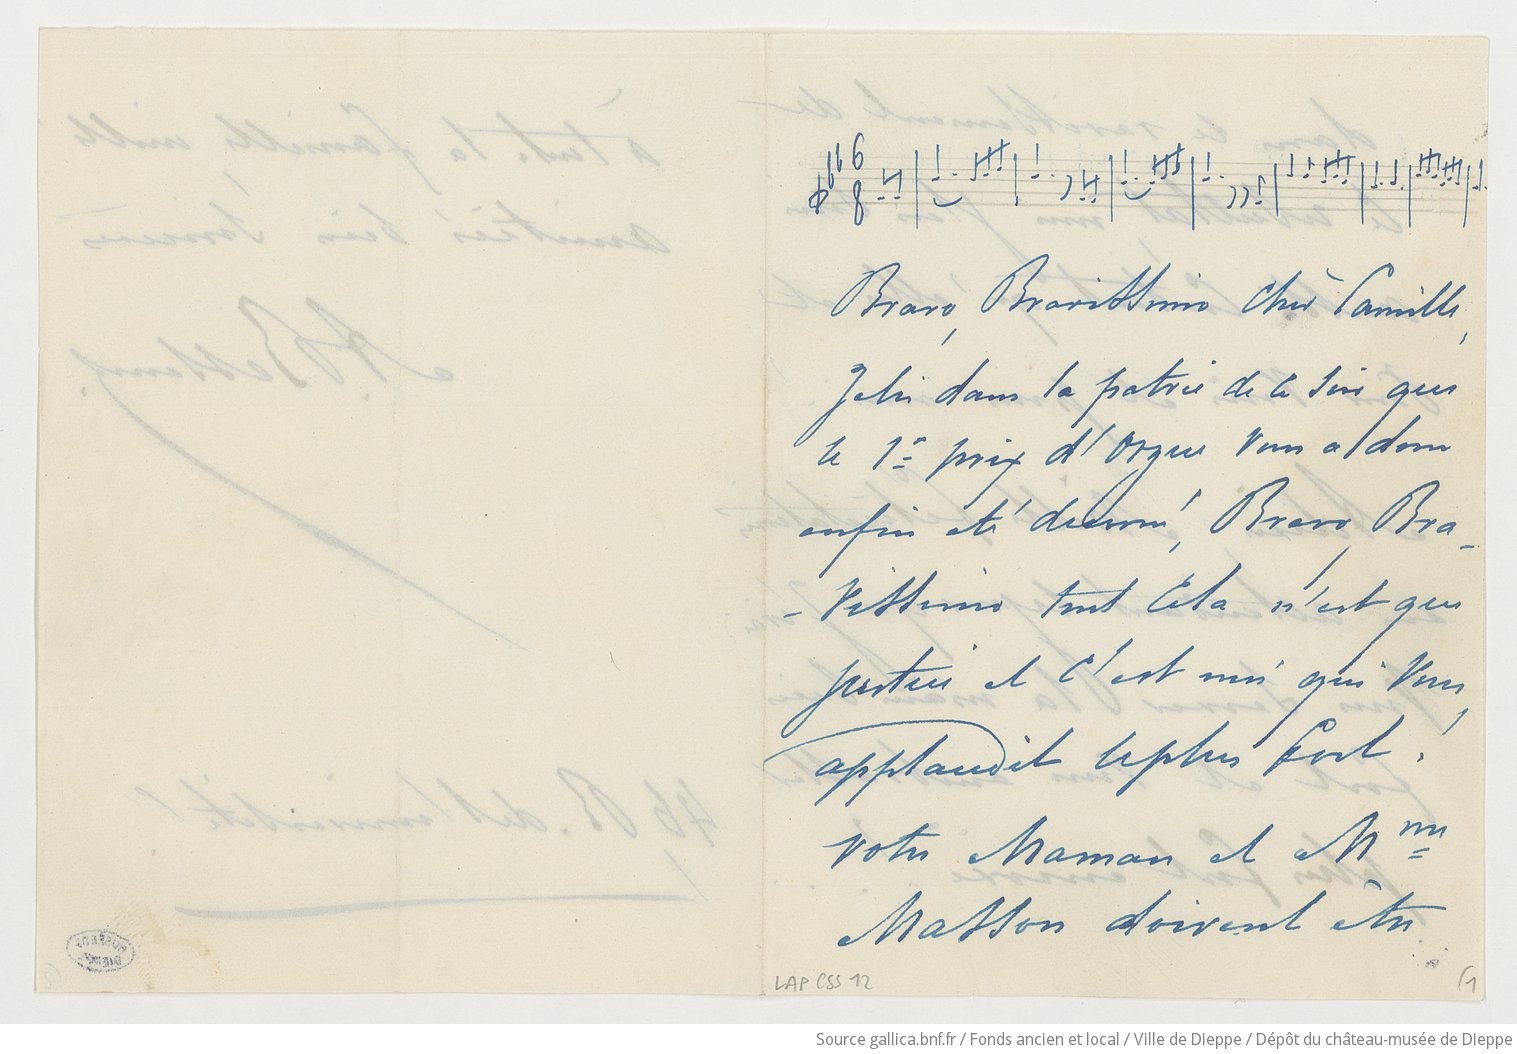 Bravo, Bravissimo cher Camille,
Je lis dans la patrie de ce soir que
le 1er prix d'orgue vous a donc
enfin été décerné, Bravo, Bra-
-vissimo tout cela n'est que
justice et c'est moi qui vous
applaudit le plus fort!
votre Maman et Mme
Masson doivent être
LAP CSS 12
(1
Source gallica.bnf.fr / Fonds ancien et local / Ville de Dieppe / Dépôt du château-musée de Dieppe